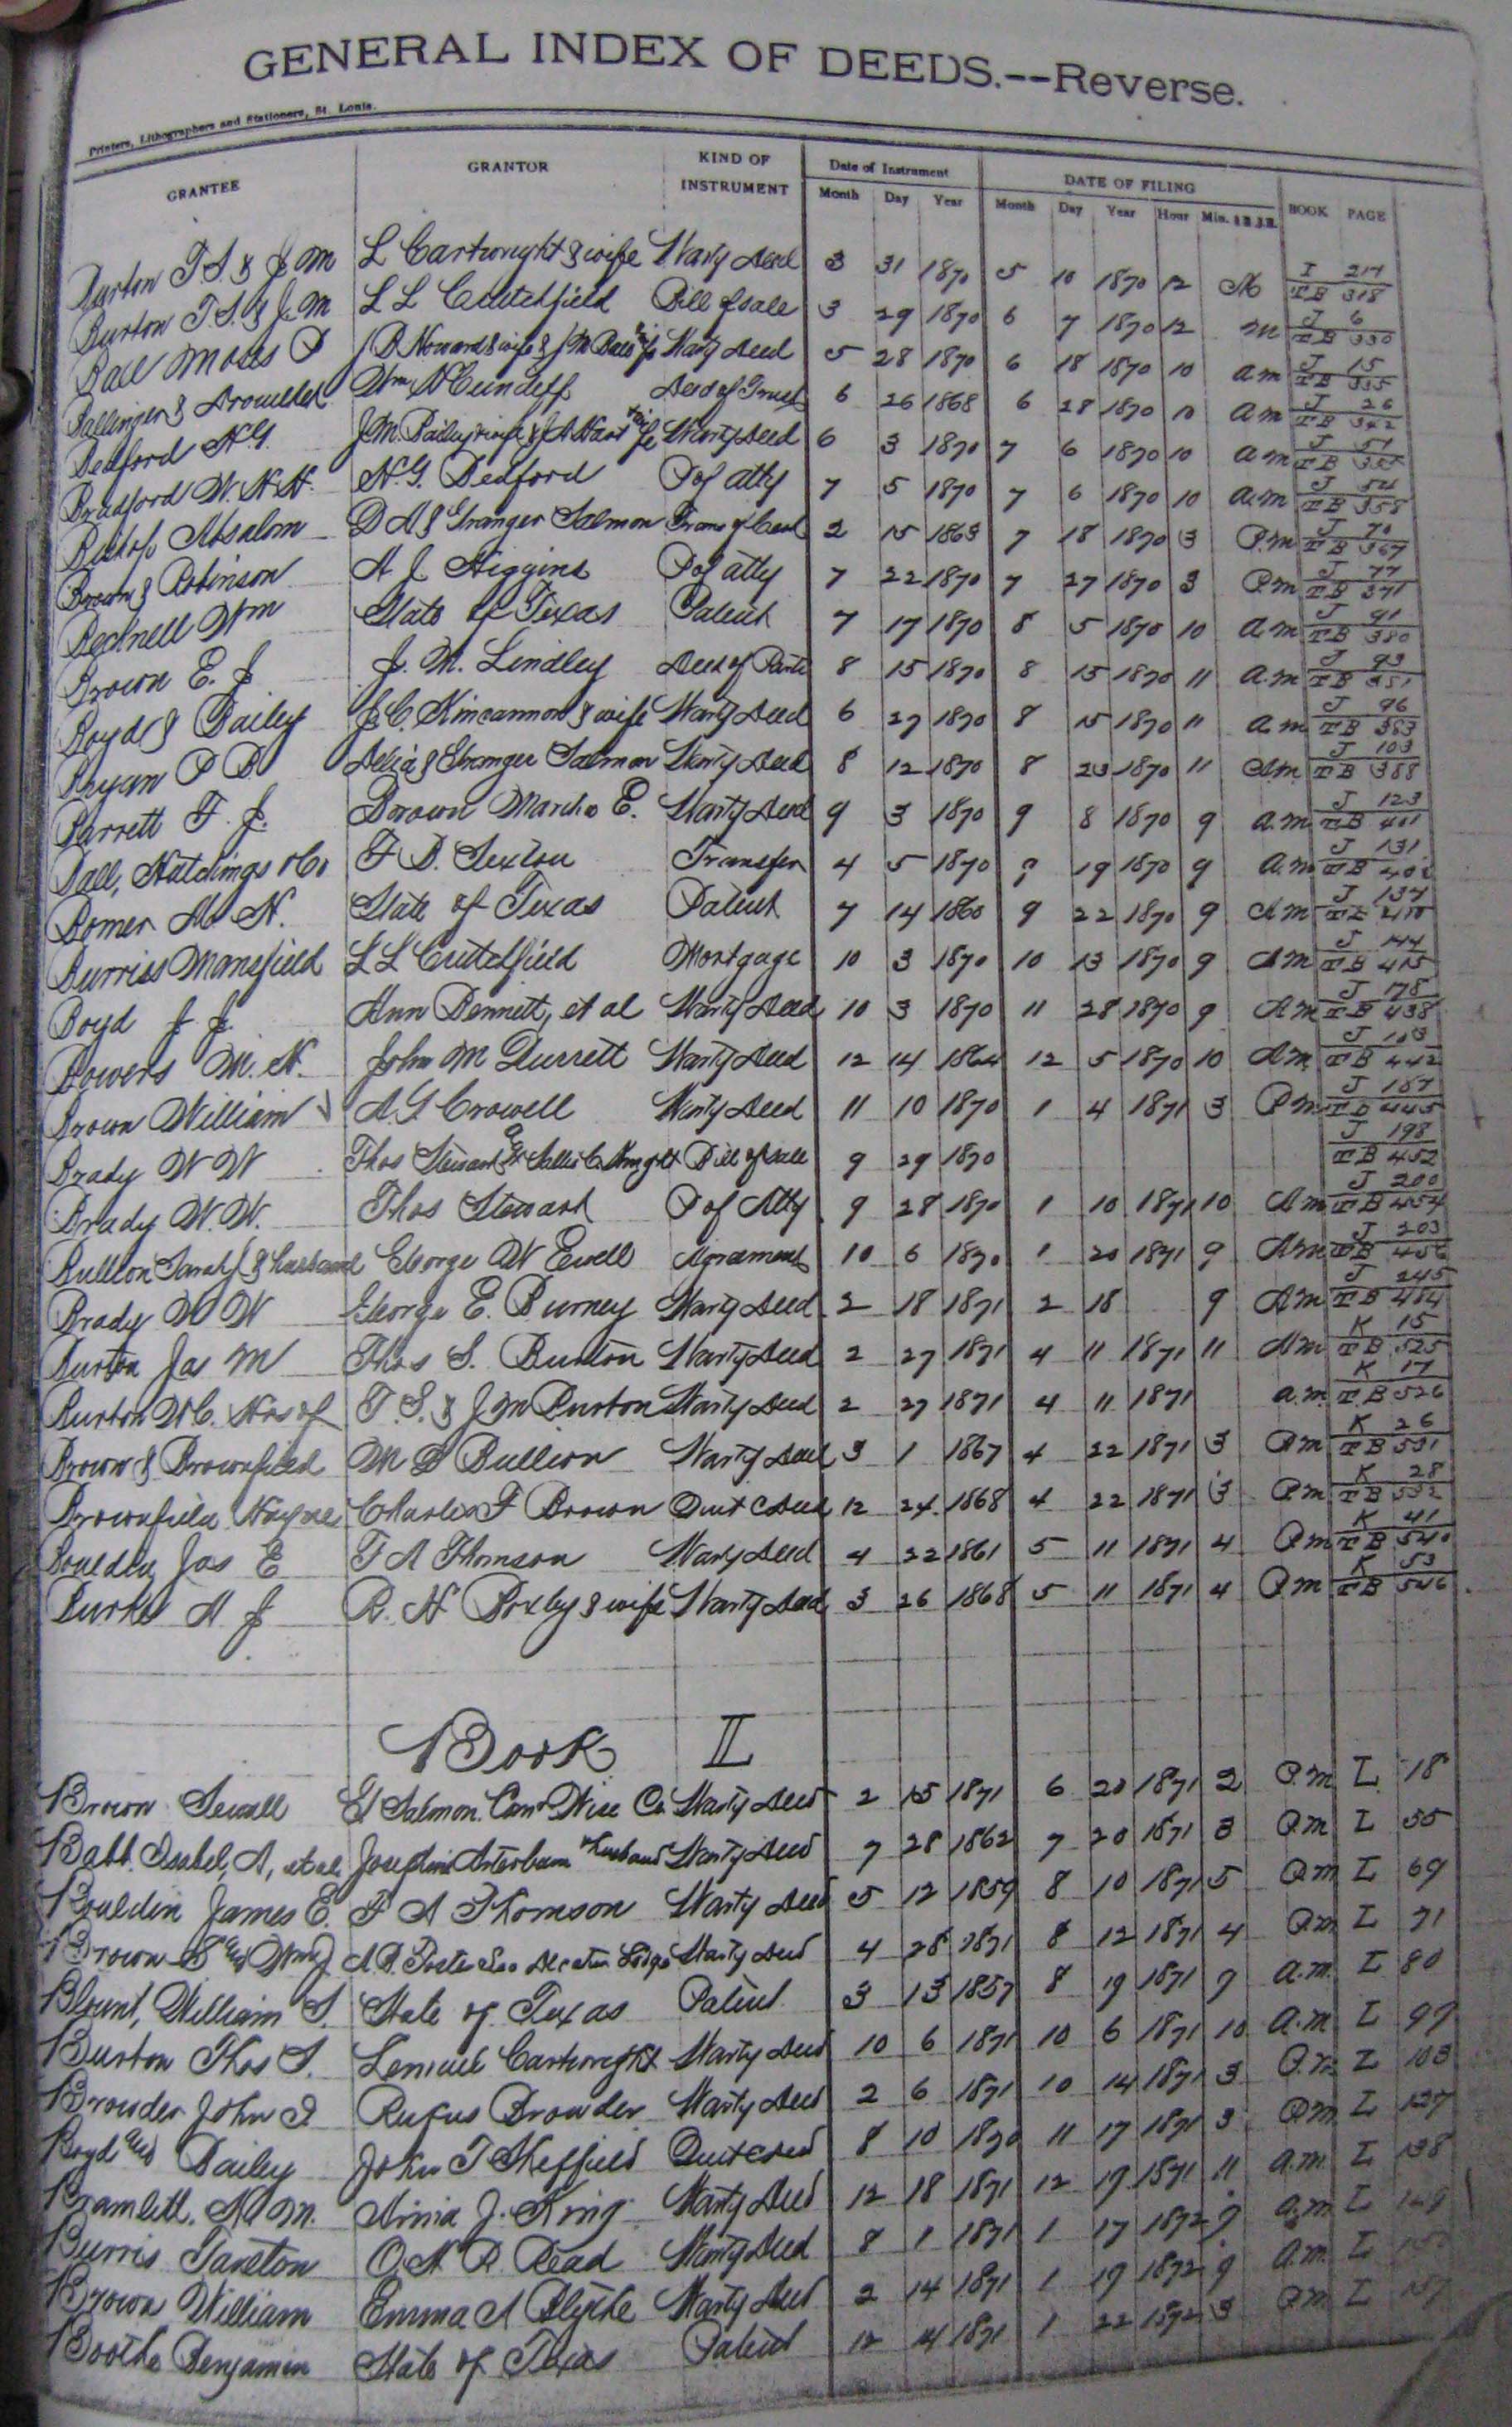 GENERAL INDEX OF DEEDS.--Reverse.
Printers, Lithographers and Stationers, St. Louis.
GRANTEE GRANTOR KIND OF INSTRUMENT Date of Instrument DATE OF FILING BOOK PAGE
Month Day Year Month Day Year Hour Min.
Burton T S & J M L Cartwright & wife Warty Deed 3 31 1870 5 10 1870 12 M I 217 TB 318
Burton T. S. & J. M L L Crutchfield Bill of sale 3 29 1870 6 7 1870 12 m J 6 TB 330
Ball Moses P J B Howard & wife & J M Ball & wife Warty Deed 5 28 1870 6 18 1870 10 am J 15 TB 335
Ballinger & Wm Deed of Trust 6 26 1868 6 28 1870 10 am J 26 TB 342
Bedford H. G. J. M. Bailey & wife & J A Hart & wife Warty Deed 6 3 1870 7 6 1870 10 am J 51 TB
Bradford W. H. H. H. G. Bedford P of atty 7 5 1870 7 6 1870 10 a.m J 54 TB 358
Bishop Absalom D A & Granger Salmon Trans of Cert 2 15 1863 7 18 1870 3 P.m J 70 TB 367
Brown & Robinson A J Higgins P of atty 7 22 1870 7 27 1870 3 Pm J 77 TB 371
Becknell Wm State of Texas Patent 7 17 1870 8 5 1870 10 a.m J 91 TB 380
Brown E. J J. M. Lindley Deed of Parti 8 15 1870 8 15 1870 11 a.m J 93 TB 381
Boyd & Bailey J. C. Kincannon & wife Warty Deed 6 27 1870 8 15 1870 11 a.m J 96 TB 383
Bryan P B Delia & Granger Salmon Warty Deed 8 12 1870 8 23 1870 11 Am J 103 TB 388
Barrett F. J. Brown E. Warty Deed 9 3 1870 9 8 1870 9 a.m J 123 TB 401
Ball, Hutchings & Co F B. Sexton Transfer 4 5 1870 9 19 1870 9 a.m J 131 TB
Bomer M. H. State of Texas Patent 7 14 1860 9 22 1870 9 Am J 137 TB 410
Burriss Mansfield L L Crutchfield Mortgage 10 3 1870 10 13 1870 9 Am J 144 TB 415
Boyd J. J. Ann Bennett, et al Warty Deed 10 3 1870 11 28 1870 9 Am J 178 TB 438
Bowers M. H. John M Durrett Warty Deed 12 14 1864 12 5 1870 10 Am J TB 442
Brown William A. G Crowell Warty Deed 11 10 1870 1 4 1871 3 Pm J 187 TB 445
Brady W W Thos Stewart Sallie C. Bill of sale 9 29 1870 J 198 TB 452
Brady W. W. Thos Stewart P of Atty 9 28 1870 1 10 1871 10 Am J 200 TB 454
Bullion Sarah J & husband George W Ewell Agreement 10 6 1870 1 20 1871 9 Am J 203 TB 456
Brady W W George E. Burney Warty Deed 2 18 1871 2 18 9 Am J 245 TB 484
Burton Jas M Thos S. Burton Warty Deed 2 27 1871 4 11 1871 11 Am K 15 TB 525
Burton W C. Hrs of T. S. & J M Burton Warty Deed 2 27 1871 4 11 1871 a.m. K 17 TB 526
Brown & Brownfield M Bullion Warty Deed 3 1 1867 4 22 1871 3 Pm K 26 TB 531
Brownfield Charles F Brown Quit C Deed 12 24 1868 4 22 1871 3 Pm K 28 TB 532
Bouldin Jas E F A Thomson Warty Deed 4 22 1861 5 11 1871 4 Pm K 41 TB 540
Burke A J R. H Boxley & wife Warty Deed 3 26 1868 5 11 1871 4 P.m K 53 TB 546
Book L
Brown Sewall G Salmon Com Wise Co Warty Deed 2 15 1871 6 20 1871 2 P.m L 18
Babb. Isabel, A, et al Josephine Arterburn & husband Warty Deed 7 28 1862 7 20 1871 3 P.m L 55
Bouldin James E. F A Thomson Warty Deed 5 12 1859 8 10 1871 5 Pm L 69
Brown and Wm J A. B. Foster Sec Decatur Lodge Warty Deed 4 28 1871 8 12 1871 4 P.m L 71
Blount, William S. State of Texas Patent 3 13 1857 8 19 1871 9 a.m. L 80
Burton Thos S. Lemuel Cartwright Warty Deed 10 6 1871 10 6 1871 10 a.m L 97
Browder John I Rufus Browder Warty Deed 2 6 1871 10 14 1871 3 P.m L 103
Boyd and Bailey John T Sheffield Quit C Deed 8 10 1870 11 17 1871 3 P.m L 127
Bramlett. N. M. J. King Warty Deed 12 18 1871 12 19 1871 11 a.m. L 138
Burris Tareton O. H. P. Read Warty Deed 8 1 1871 1 17 1872 9 a.m L 149
Brown William Emma A Blythe Warty Deed 2 14 1871 1 19 1872 9 a.m. L
Boothe Benjamin State of Texas Patent 12 14 1871 1 22 1872 3 P.m L 157